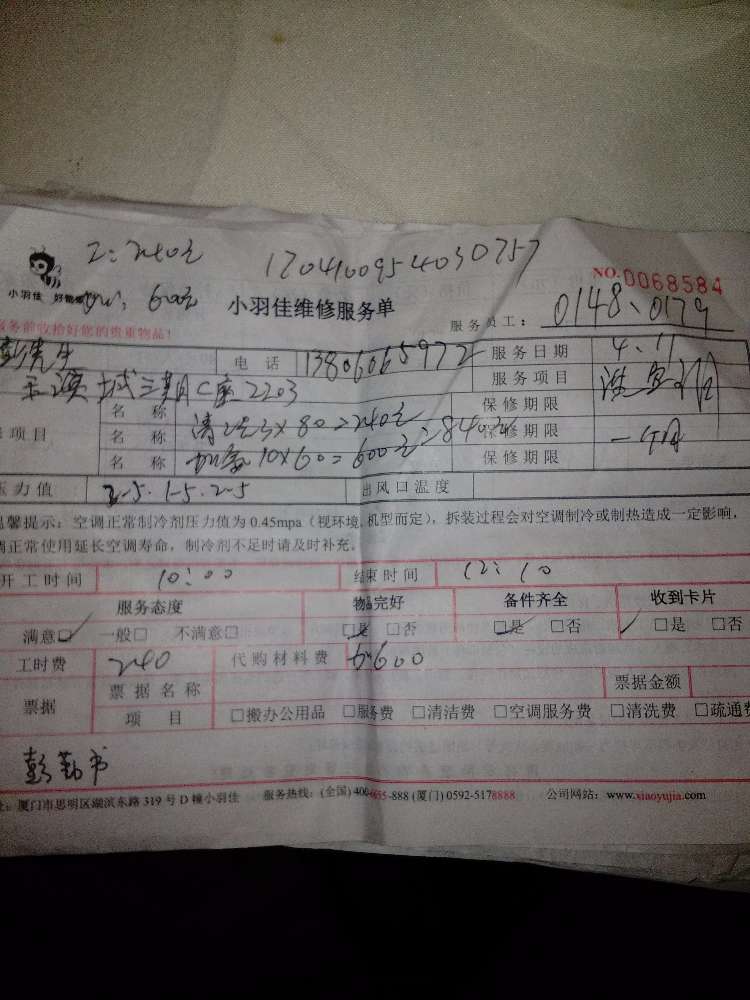 2:240元 1704100954030757
NO.0068584
小羽佳 600元 小羽佳维修服务单 服务员工: 0148、0179
务前收拾好您的贵重物品!
彭先生 电话 13806065972 服务日期 4.11
城三期C座2203 服务项目
项目 名称 清洗3×80=240元 保修期限
名称 加氟10×60=600元=840元 保修期限 一个月
名称 保修期限
压力值 2.5.1.5.2.5 出风口温度
温馨提示:空调正常制冷剂压力值为0.45mpa(视环境、机型而定),拆装过程会对空调制冷或制热造成一定影响,
调正常使用延长空调寿命,制冷剂不足时请及时补充。
开工时间 10:00 结束时间 12:10
服务态度 物品完好 备件齐全 收到卡片
满意☑ 一般□ 不满意□ ☑是 □否 ☑是 □否 ✓□是 □否
工时费 240 代购材料费 600
票据 票据名称 票据金额
项目 □搬办公用品 □服务费 □清洁费 □空调服务费 □清洗费 □疏通费
彭勤书
址:厦门市思明区湖滨东路319号D幢小羽佳 服务热线:(全国)400-655-888 (厦门)0592-5178888 公司网站:www.xiaoyujia.com